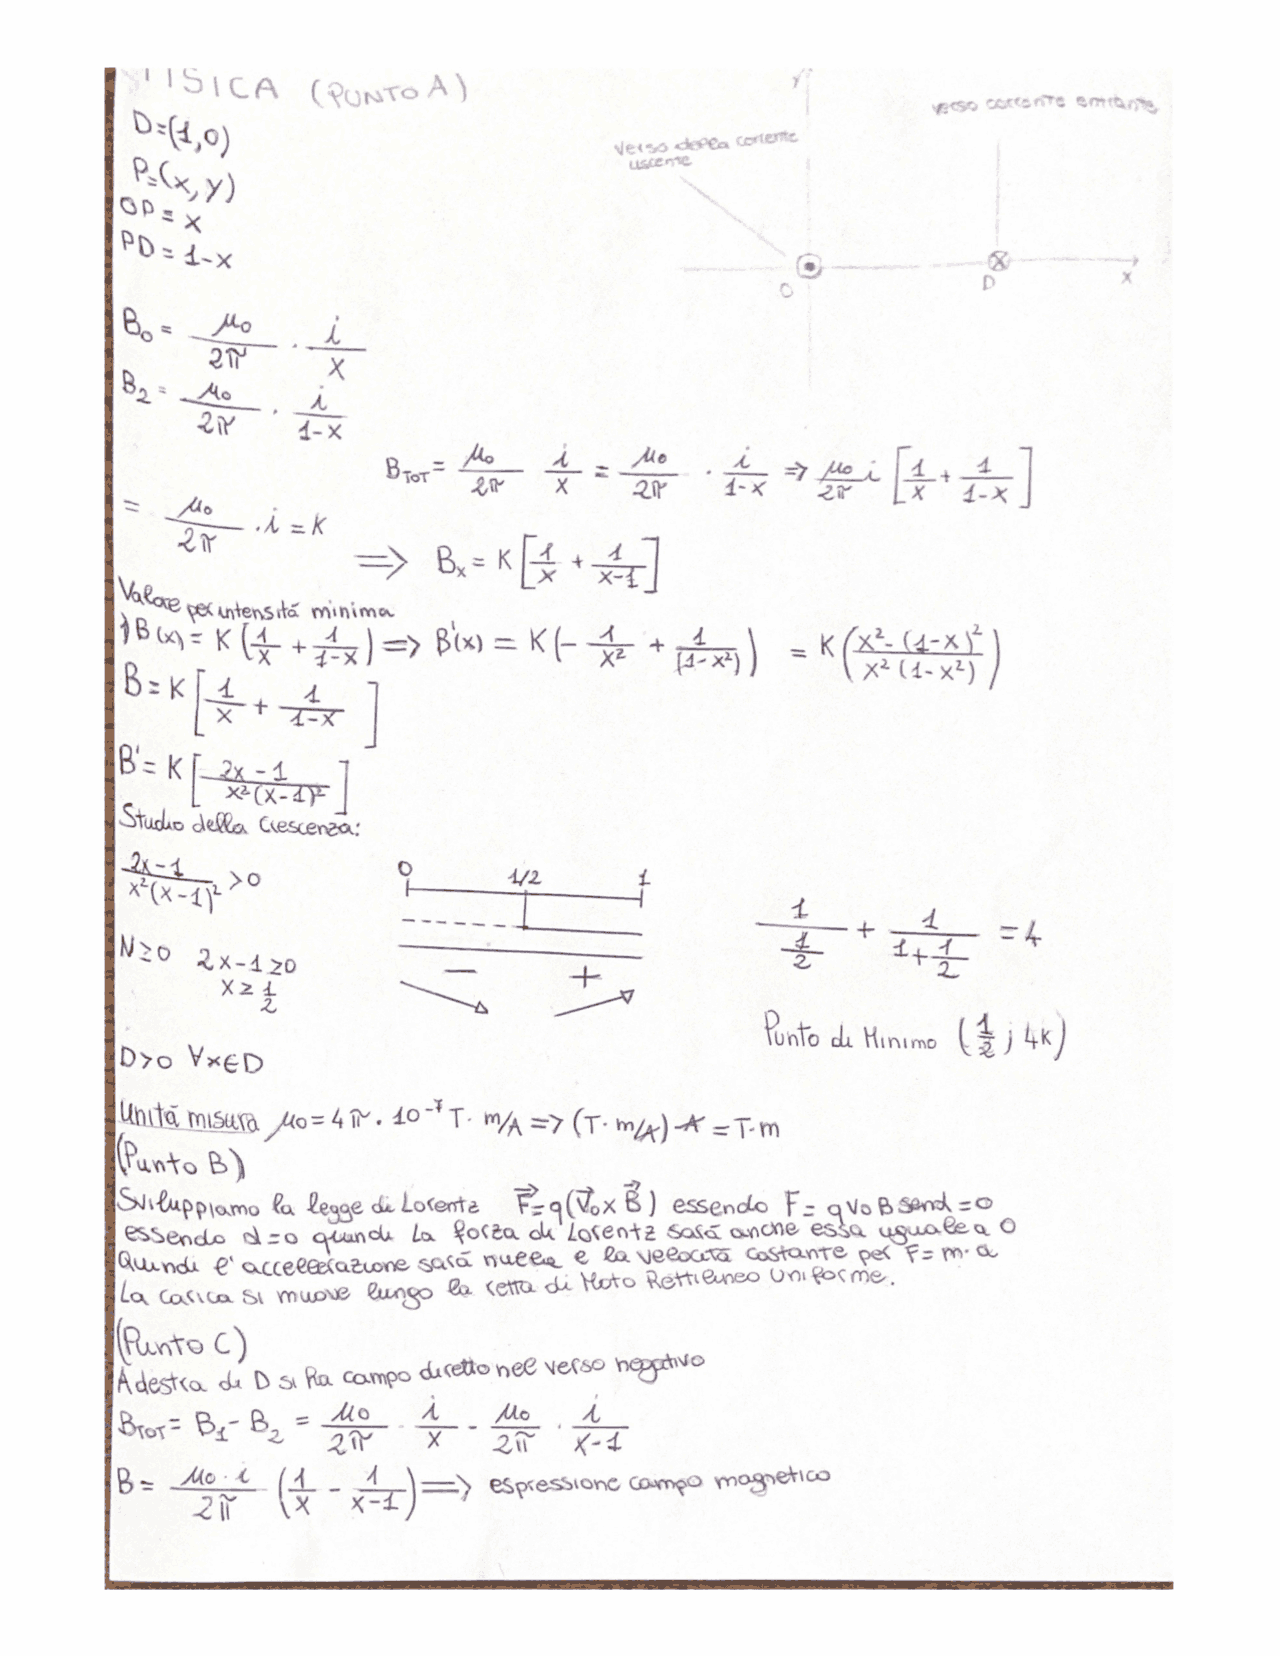 FISICA (PUNTO A)
D=(1,0)
P=(x,y)
OP = x
PD = 1-x
y
verso corrente entrante
verso della corrente
uscente
O
D
x
B₀ = μ₀/2π · i/x
B₂ = μ₀/2π · i/1-x
B_TOT = μ₀/2π i/x = μ₀/2π · i/1-x => μ₀/2π i [1/x + 1/1-x]
= μ₀/2π · i = K
=> Bₓ = K [1/x + 1/x-1]
Valore per intensitá minima
1) B(x) = K (1/x + 1/1-x) => B'(x) = K (- 1/x² + 1/(1-x²)) = K (x²-(1-x)²/x²(1-x²))
B = K [1/x + 1/1-x]
B' = K [2x-1/x²(x-1)²]
Studio della crescenza:
2x-1/x²(x-1)² >0
0 1/2 1
1/1/2 + 1/1+1/2 = 4
N≥0 2x-1≥0
x≥ 1/2
- +
Punto di Minimo (1/2 ; 4K)
D>0 ∀x∈D
Unitá misura μ₀ = 4π · 10⁻⁷ T · m/A => (T · m/A) A = T·m
(Punto B)
Sviluppiamo la legge di Lorentz F⃗=q(V⃗₀ x B⃗) essendo F = qV₀B senα = 0
essendo α=0 quindi la forza di Lorentz sará anche essa uguale a 0
Quindi l'accellerazione sará nulla e la velocitá costante per F=m·a
La carica si muove lungo la retta di Moto Rettilineo Uniforme.
(Punto C)
A destra di D si ha campo diretto nel verso negativo
B_TOT = B₁ - B₂ = μ₀/2π · i/x - μ₀/2π · i/x-1
B = μ₀·i/2π (1/x - 1/x-1) => espressione campo magnetico